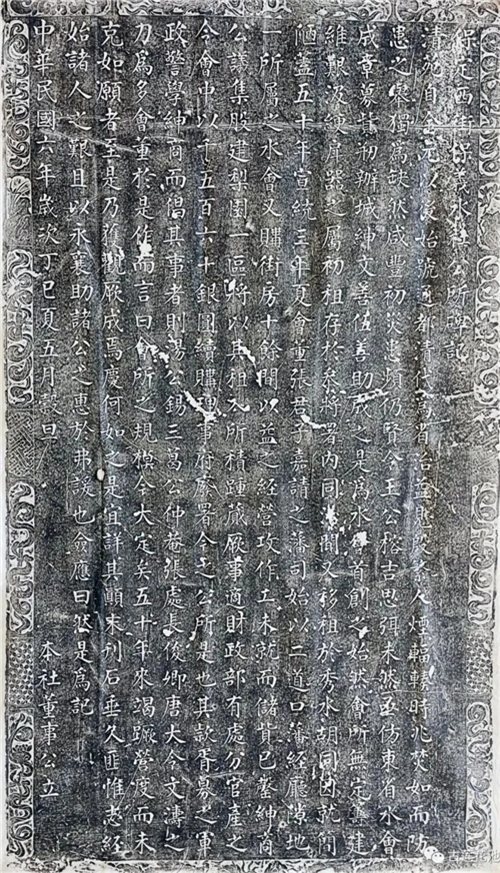 保定西街保義水社公所碑記
清苑自金元以後始號通都清代為省治益人煙輻輳時兆焚如而防
患之舉獨為缺然咸豐初災患頻仍賢令王公榕吉思弭未然亟仿東省水會
成章募貲初辦城紳文善伍善助成之是為水會首創之始然會所無定建
維艱汲綆器之屬初租存於參將署內同間又移租於秀水胡同因就簡
陋蓋五十年宣統三年夏會董張君子嘉請之藩司始以二道口藩經廳隙地
一所屬之水會又購街房十餘間以益之經營攻作工未就而儲貲已罄紳商
公議集股建梨園一區將以其租入所積踵蕆厥事適財政部有處分官產之
令會中以千五百六十銀圓續購理事府廢署今之公所是也其款胥募之軍
政警學紳商而倡其事者則湯公錫三葛公仲菴張處長俊卿唐大令文濤之
力為多會董於是作而言曰會所之規模今大定矣五十年來竭蹶營度而未
克如願者至是乃觀厥成焉慶何如之是宜詳其顛末刊石垂久匪惟志經
始諸人之艱且以永襄助諸公之惠於弗諼也僉應曰然是為記
中華民國六年歲次丁巳夏五月穀旦 本社董事公立